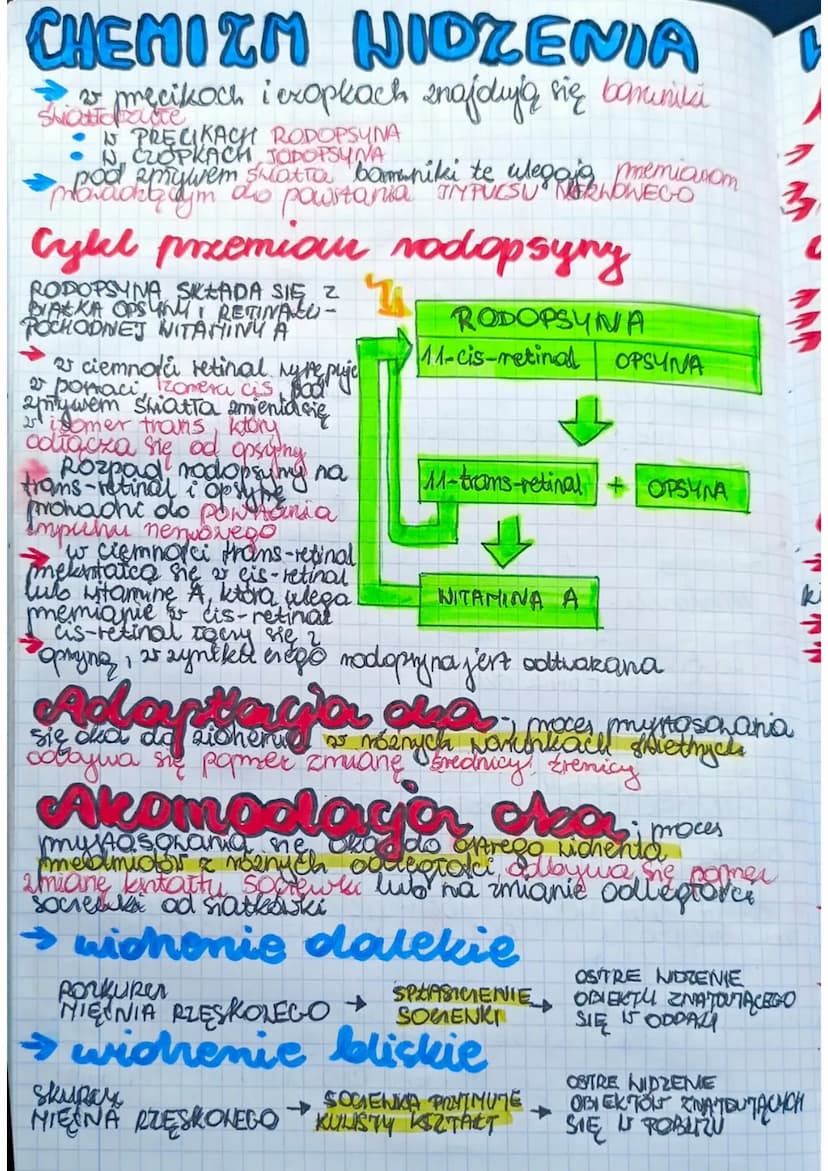 CHEMIZM WIDZENIA
→ w pręcikach i czopkach znajdują się barwniki
światłoczułe
• W PRĘCIKACH RODOPSYNA
• W CZOPKACH JODOPSYNA
→ pod wpływem światła barwniki te ulegają przemianom
prowadzącym do powstania IMPULSU NERWOWEGO
Cykl przemian rodopsyny
RODOPSYNA SKŁADA SIĘ Z
BIAŁKA OPSYNY I RETINALU-
POCHODNEJ WITAMINY A
→ w ciemności retinal występuje
w postaci izomeru cis pod
wpływem światła zmienia się
w izomer trans, który
odłącza się od opsyny
→ Rozpad rodopsyny na
trans-retinal i opsynę
prowadzi do powstania
impulsu nerwowego
→ w ciemności trans-retinal
przekształca się w cis-retinal
lub witaminę A, która ulega
przemianie w cis-retinal
→ cis-retinal łączy się z
opsyną, w wyniku czego rodopsyna jest odtwarzana
RODOPSYNA
11-cis-retinal OPSYNA
11-trans-retinal + OPSYNA
WITAMINA A
Adaptacja oka - proces przystosowania
się oka do widzenia w różnych warunkach świetlnych
odbywa się poprzez zmianę średnicy źrenicy
Akomodacja oka - proces
przystosowania się oka do ostrego widzenia
przedmiotów z różnych odległości, odbywa się poprzez
zmianę kształtu soczewki lub na zmianie odległości
soczewki od siatkówki
→ widzenie dalekie
ROZKURCZ
MIĘŚNIA RZĘSKOWEGO → SPŁASZCZENIE
SOCZEWKI → OSTRE WIDZENIE
OBIEKTU ZNAJDUJĄCEGO
SIĘ W ODDALI
→ widzenie bliskie
SKURCZ
MIĘŚNIA RZĘSKOWEGO → SOCZEWKA PRZYJMUJE
KULISTY KSZTAŁT → OSTRE WIDZENIE
OBIEKTÓW ZNAJDUJĄCYCH
SIĘ W POBLIŻU